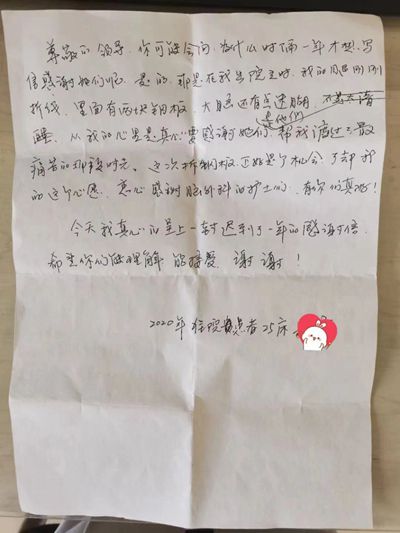 尊敬的领导,你可能会问,为什么时隔一年才想写
信感谢她们呢?是的,那是在我出院之时,我的周围刚刚
拆线,里面有两块钢板,大腿还有点迷糊,不是太清
醒,从我的心里是真心要感谢她们,是他们帮我渡过了最
痛苦的那段时光。这次拆钢板,正好是个机会,了却我
的这个心愿。衷心感谢脑外科的护士们,有你们真好!
今天我真心的呈上一封迟到了一年的感谢信,
希望你们能理解能接受,谢谢!
2020年住院患者25床